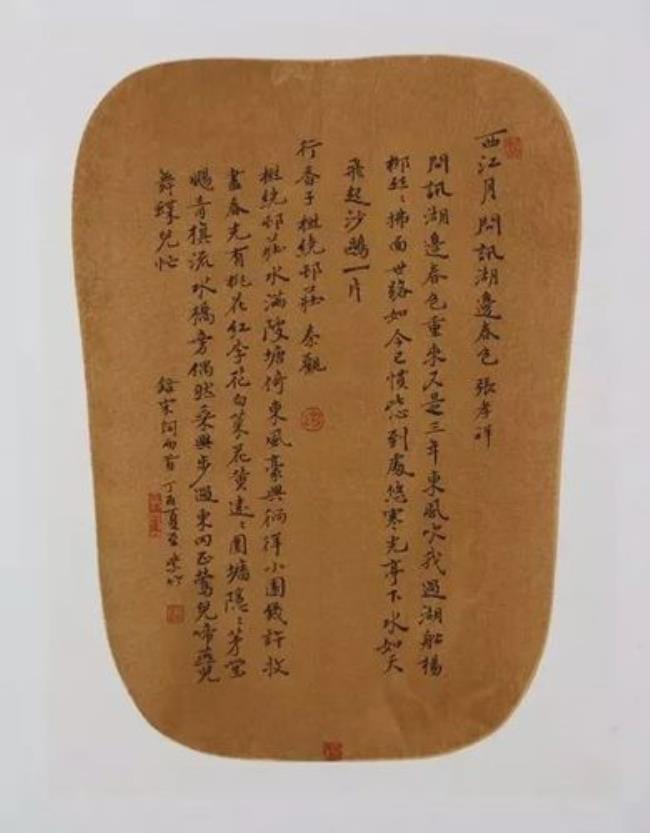 西江月 問訊湖邊春色 張孝祥
問訊湖邊春色重來又是三年東風吹我過湖船楊
柳絲〻拂面世路如今已慣此心到處悠寒光亭下水如天
飛起沙鷗一片
行香子 樹繞邨莊 秦觀
樹繞邨莊水滿陂塘倚東風豪興徜徉小園幾許收
盡春光有桃花紅李花白菜花黃遠〻圍墻隱〻茅堂
颺青旗流水橋旁偶然乘興步過東岡正鶯兒啼燕兒
舞蝶兒忙
錄宋詞兩首 丁酉夏至